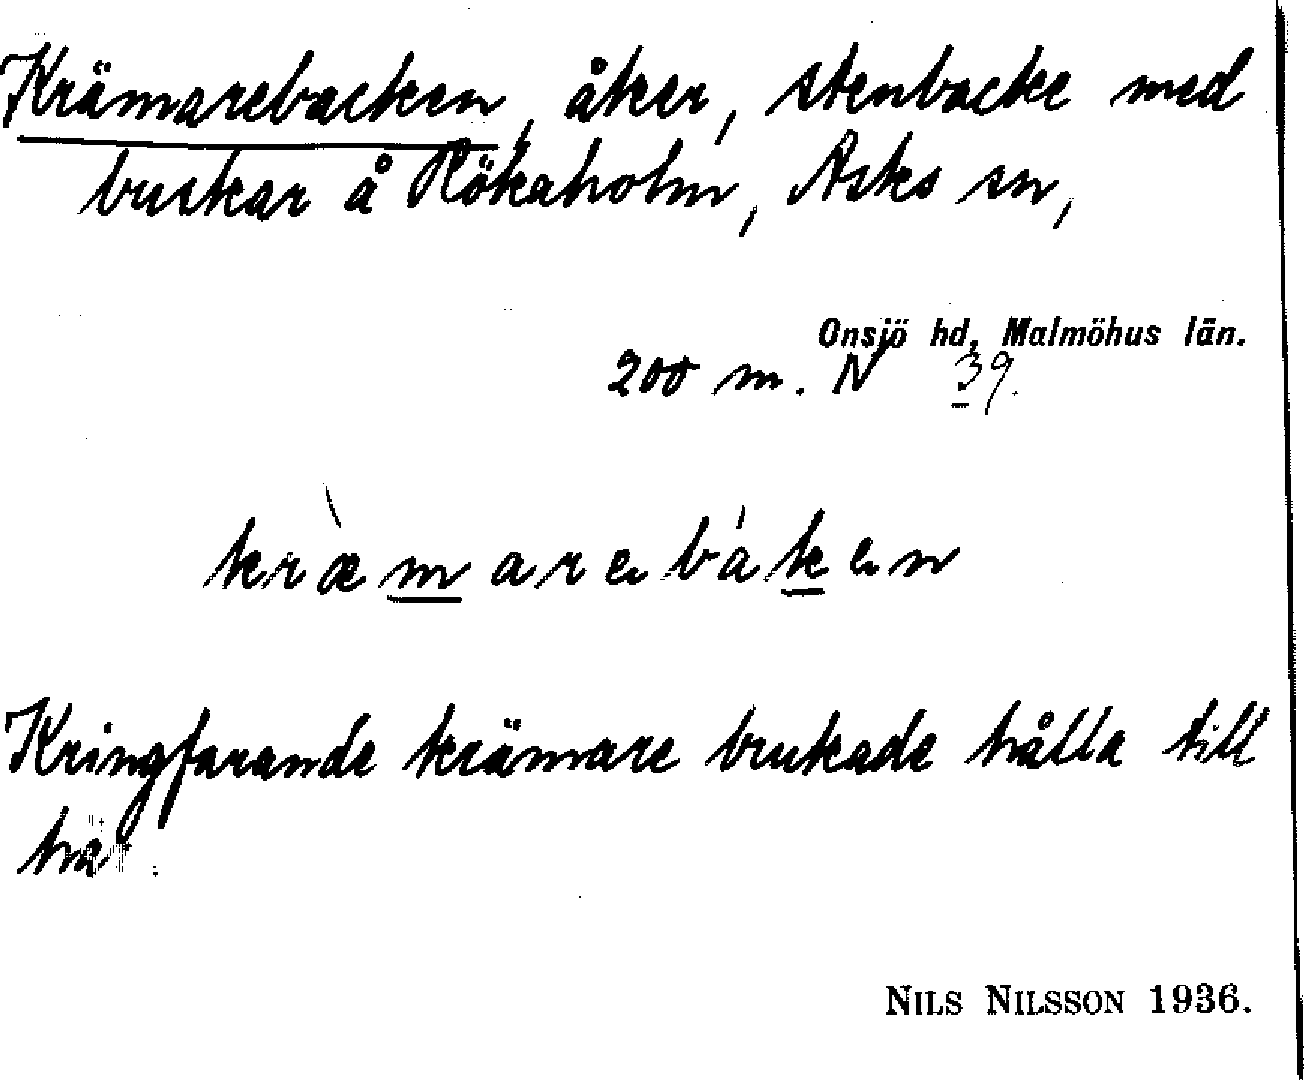 Krämarebacken, åker, stenbacke med
buskar å Rökaholm, Asks sn,
Onsjö hd, Malmöhus län.
200 m. N 39.
kræ̀marebáken
Kringfarande krämare brukade hålla till
här.
NILS NILSSON 1936.